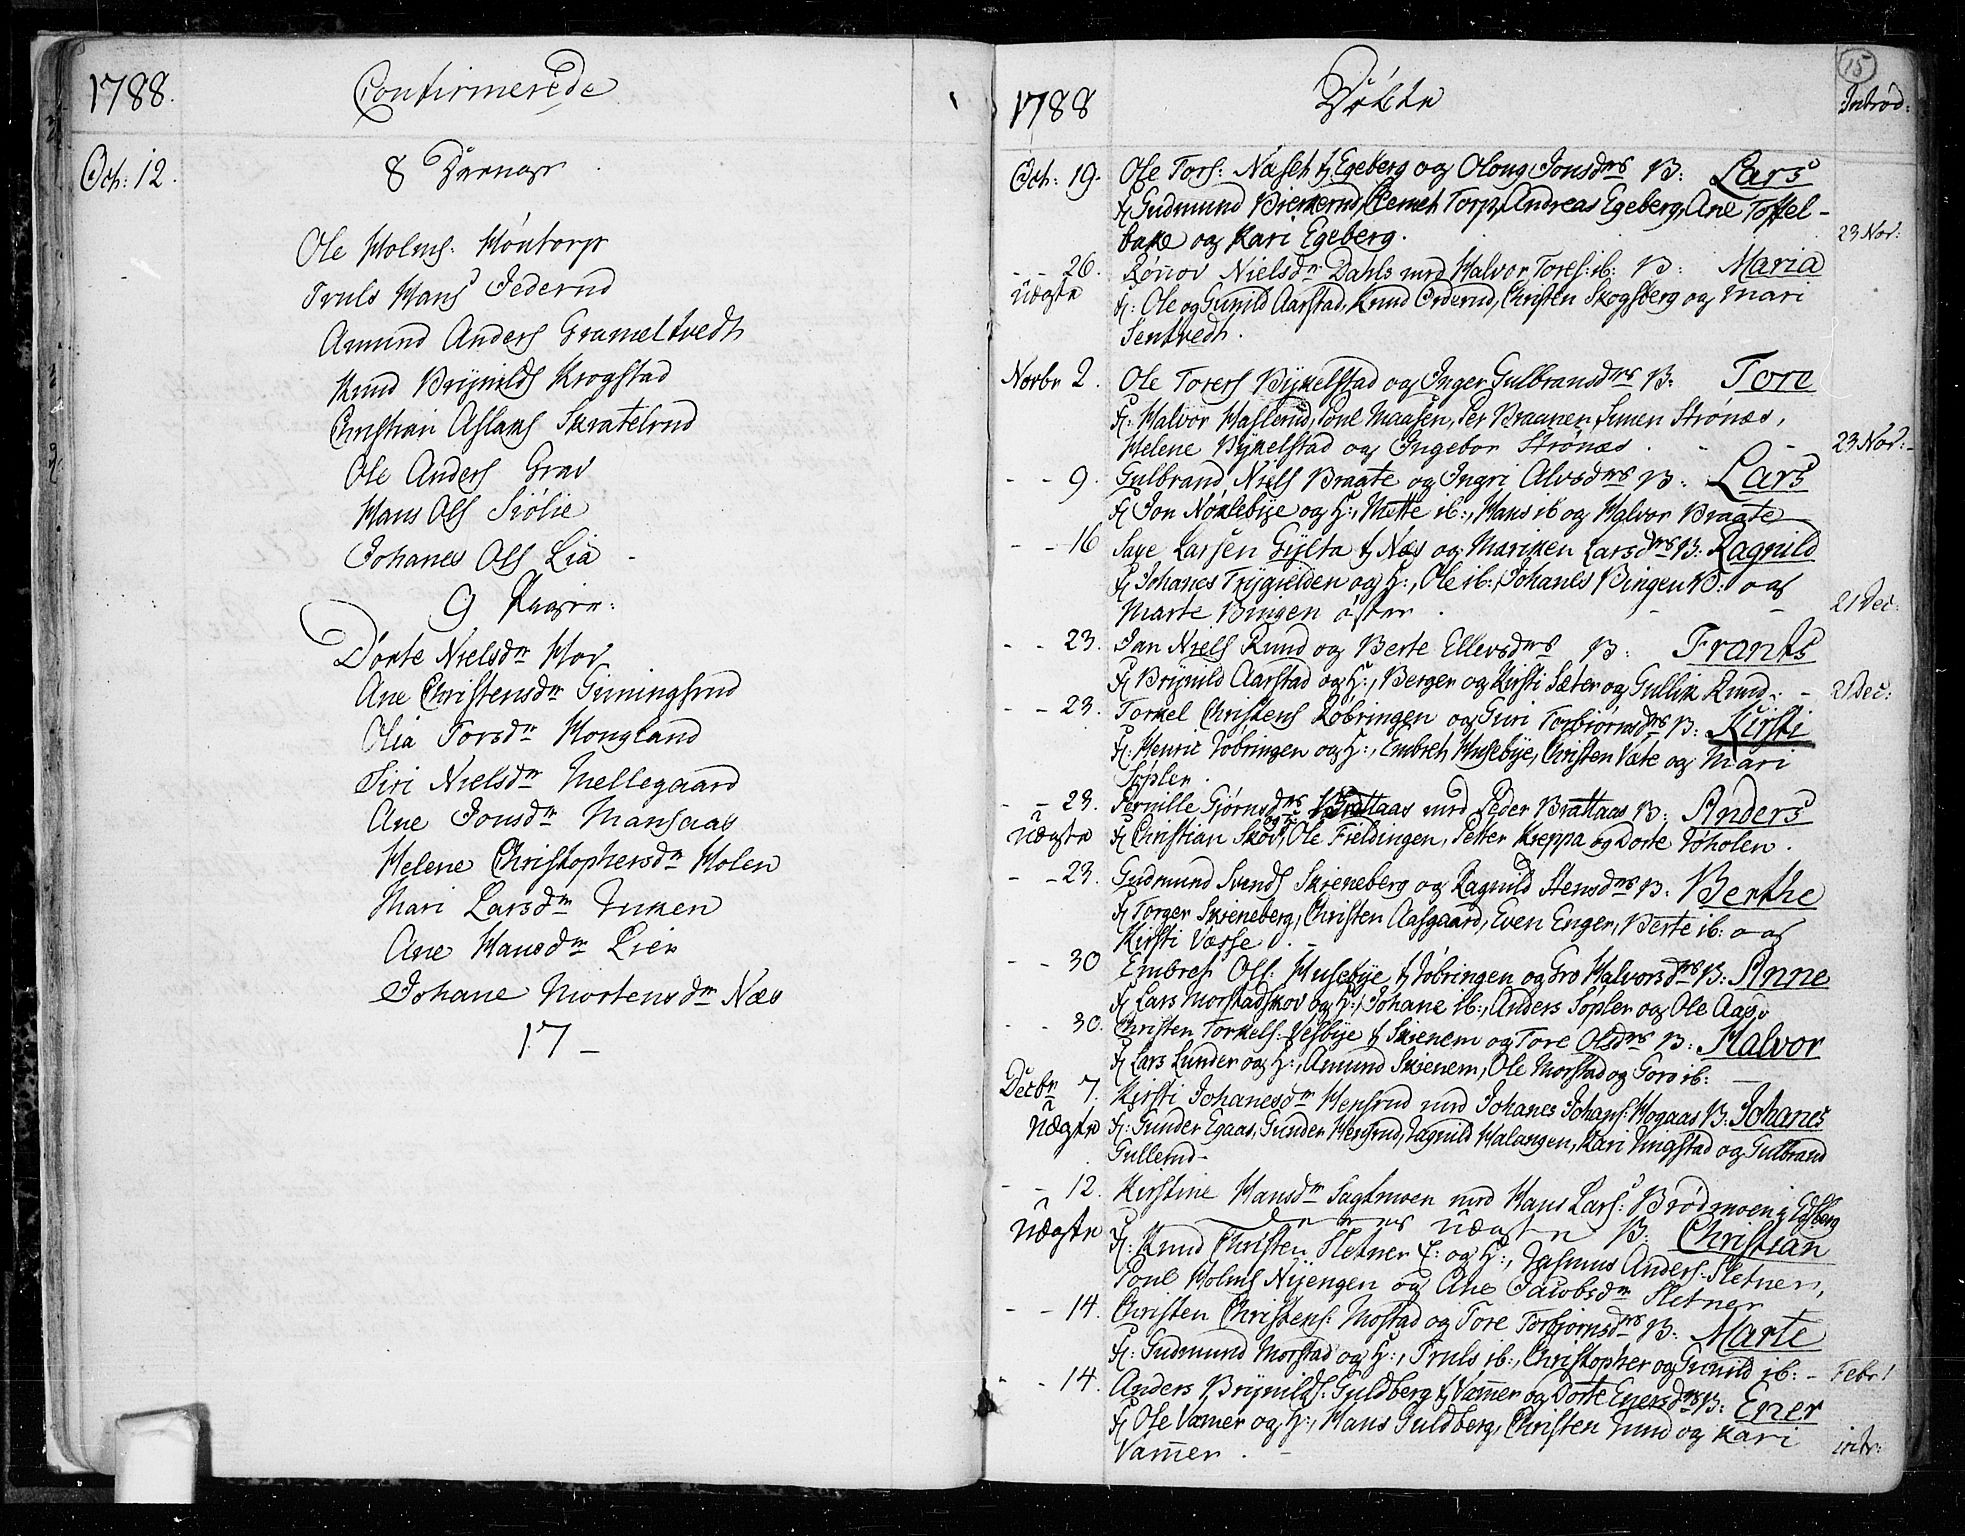 1788.
Confirmerede
Oct: 12.
8 Drenge.
Ole Holms:
Truls Hans
Amund Anders Grameltvedt
Knud Brynilds Krogstad
Christian Aslaks Skratelrud
Ole Anders Grav
Hans Ols Siølie
Johanes Ols Lia
9 Piger:
Dorte Nielsdr Hov
Ane Christensdr
Olia Torsdr Hougland
Siri Nielsdr Mellegaard
Ane Jonsdr Mansaas
Helene Christophersdr Holen
Mari Larsdr
Ane Hansdr Lier
Johane Mortensdr Næs
17
15
1788
Døbte
Introd:
Oct: 19. Ole Tors: Næset Egeberg og Oloug Jonsdrs B: Lars
F Gudmund Clemet Torp, Andreas Egeberg, Ane Toffel-
bake og Kari Egeberg. 23 Nov:
- - 26. Rønnov Nielsdr Dahls med Halvor Tores: ib: B: Maria
Uægte F: Ole og Gunild Aarstad, Knud Orderud, Christen Skogsberg og Mari
Sentvedt.
Novbr 2. Ole Torers Bykelstad og Inger Gulbransdrs B: Tore
F: Halvor Haslerud, Poul Maasen, Per Braanen, Simen Strønæs,
Helene Bykelstad og Ingebor Strønæs. 23 Nov:
- - 9. Gulbrand Niels Braate og Ingri Alvsdrs B: Lars
F Jon Nørlebye og H:, Mette ib:, Hans ib og Halvor Braate
- - 16 Saxe Larsen Gylta Næs og Mariken Larsdrs B: Ragnild
F Johanes Trygielden og H:, Ole ib:, Johanes Bingen B: og
Marte Bingen øster. 21 Dec:
- - 23. Jan Niels Ruud og Berte Ellevsdrs B: Frants
F Brynild Aarstad og H:, Berger og Kirsti Sæter og Gullik Ruud. 21 Dec:
- - 23. Torkel Christens Jobringen og Guri Torbiørnsdrs B: Kirsti
F: Henric Jobringen og H:, Embret Husebye, Christen Væte og Mari
Søpler.
- - 23. Pernille Giørnsdrs med Peder Brattaas B: Anders
Uægte F Christian Skov, Ole Fieldingen, Petter Kreppa og Dorte
- - 23. Gudmund Svends Skieneberg og Ragnild Stensdrs B: Berthe
F Torger Skieneberg, Christen Aasgaard, Even Enger, Berte ib: og
Kirsti
- - 30 Embret Ols: Husebye Jobringen og Gro Halvorsdrs B: Anne
F Lars Morstadskov og H:, Johane ib:, Anders Søpler og Ole Aas
- - 30. Christen Torkels: Vesbye Skienem og Tore Olsdrs B: Halvor
F Lars Lunder og H:, Amund Skienem, Ole Morstad og Goro ib:
Decbr 7. Kirsti Johanesdr Hensrud med Johanes Johans: Hogaas B: Johanes
Uægte F: Gunder Egaas, Gunder Hensrud, Ragnild Halangen, Kari Ringstad og Gulbrand
Gullerud
- - 12. Kirstine Hansdr med Hans Lars: Brødmoen i Edsberg
Uægte uægte B: Christian
F: Knud Christen Sletner og H:, Rasmus Anders: Sletner,
Poul Holms Nyengen og Ane Jacobsdr Sletner
- - 14. Christen Christens: Mostad og Tore Torbiørnsdrs B: Marte
F: Gudmund Morstad og H:, Truls ib:, Christopher og Gunild ib: Febr 1
- - 14. Anders Brynilds: Guldberg Vammer og Dorte Enersdrs B: Ener
F Ole Vammer og H:, Hans Guldberg, Christen Juud og Kari
Vammer. intr: